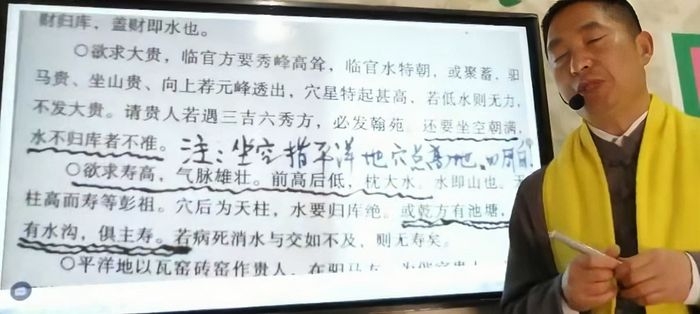 财归库，盖财即水也。
○欲求大贵，临官方要秀峰高耸，临官水特朝，或聚蓄，驲
马贵、坐山贵、向上荐元峰透出，穴星特起甚高，若低水则无力，
不发大贵。请贵人若遇三吉六秀方，必发翰苑。还要坐空朝满，
水不归库者不准。注：坐空指平洋地穴点高地
○欲求寿高，气脉雄壮。前高后低，枕大水。水即山也。天
柱高而寿等彭祖。穴后为天柱，水要归库绝。或乾方有池塘，
有水沟，俱主寿。若病死消水与交如不及，则无寿矣。
○平洋地以瓦窑砖窑作贵人，在驲马方